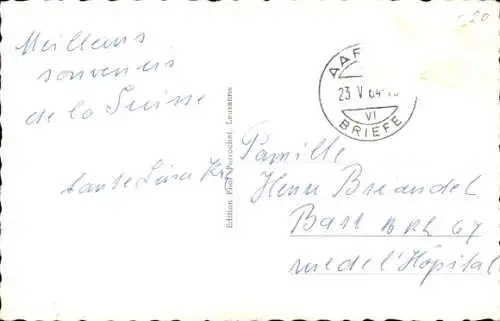 -20
Meilleurs
souvenirs
de la Suisse
tante
Edition Phot. Perrochet, Lausanne
AAR
23 V 64-
VI
BRIEFE
Famille
Henri Briandel
Bas-Rh 67
rue de l'Hôpital